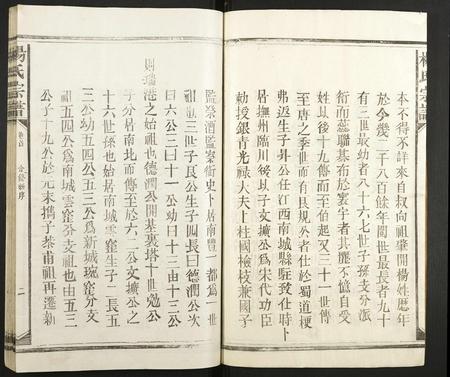 本不得不詳來自叔向祖肇開楊姓歷年
於今幾二千八百餘年閱世最長者九十
有三世最幼者八十六七世子孫支分派
衍而蕊聯基布於寰宇者其麗不億自受
姓以後十九傳而至伯起又三十一世傳
至唐之季世而有艮規外者仕於蜀道梗
弗返生子 公任江西南城縣駝 仕時卜
居撫州臨川 以子文擴公為宋代功臣
勅授銀青光禄大夫上柱國檢校兼國子
監祭酒監察御史卜居南豐一都為一世
祖 三世子艮公生子四長曰德潤公次
曰六公三曰十一公幼曰十三由十三公
則瑞港之始祖也德潤公開基裏塔十世勉公
子分居南北而傳至於六二公文擴公之
十六世孫也始居南城雲窰生子二長五
三公幼五四公五三公為新城琬窰分支
祖五四公為南城雲窰分支祖也由五三
公子十九公於元末攜子茶甫祖再遷新
楊氏宗譜
卷首
合修新序
二
楊氏宗譜